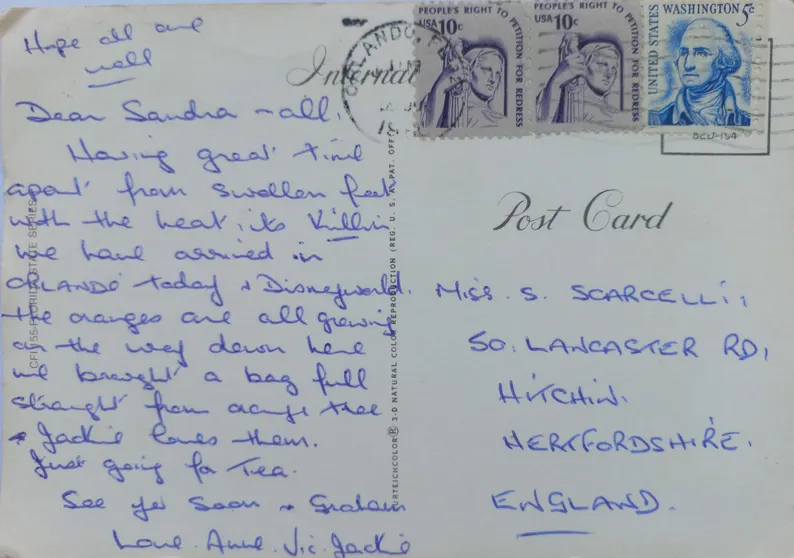 Hope all are
well
Dear Sandra & all,
Having great time
apart from swollen feet
with the heat, its Killin
we have arrived in
ORLANDO today & Disneyworld.
the oranges are all growing
on the way down here
we brought a bag full
straight from orange tree
& Jackie loves them.
Just going for Tea.
See yer Soon & Graham
Love. Anne. Vic. Jackie
CF1155-FLORIDA STATE SERIES
ORLANDO, FL
PEOPLE'S RIGHT TO PETITION FOR REDRESS
USA 10c
PEOPLE'S RIGHT TO PETITION FOR REDRESS
USA 10c
UNITED STATES
WASHINGTON 5c
Post Card
3-D NATURAL COLOR REPRODUCTION (REG. U. S. A. PAT. OFF
MISS. S. SCARCELLI,
50, LANCASTER RD,
HITCHIN.
HERTFORDSHIRE.
ENGLAND.